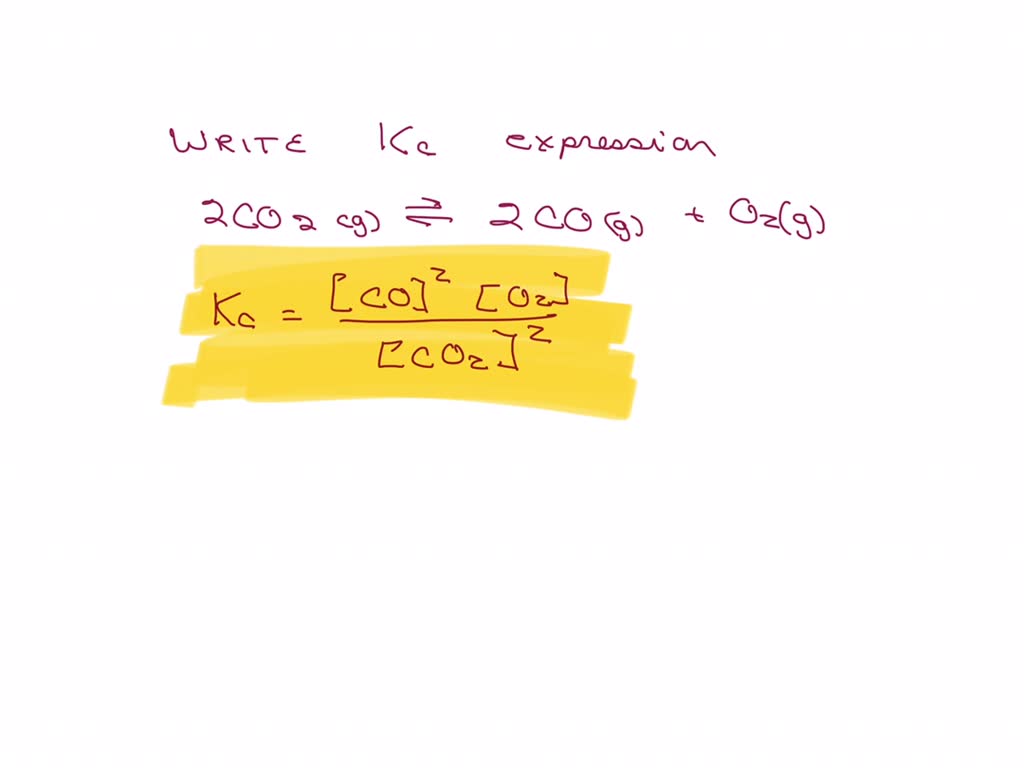 WRITE Kc expression
2CO2(g) ⇌ 2CO(g) + O2(g)
Kc = [CO]² [O2]
[CO2]²